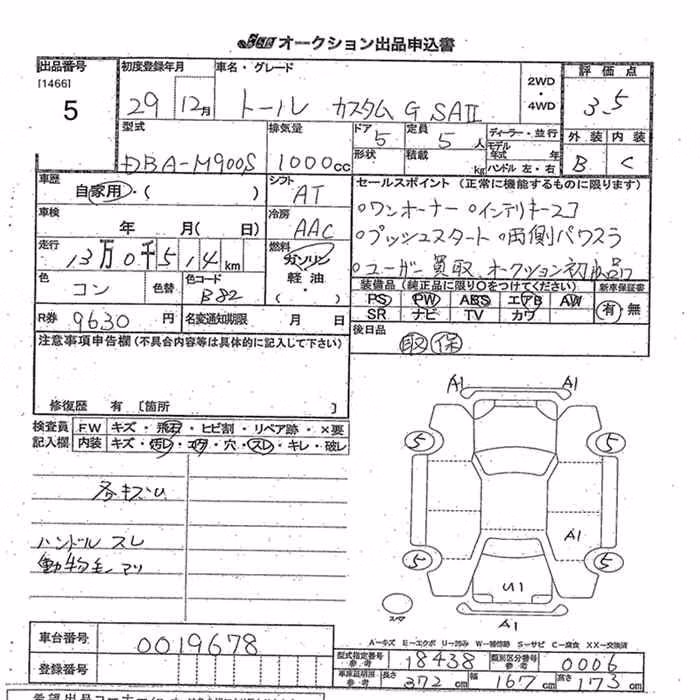 オークション出品申込書
出品番号
[1466]
5
初度登録年月
29 12月
車名・グレード
トール カスタム G SAⅡ
2WD
・
4WD
評価点
3.5
外装 内装
B C
型式
DBA-M900S
排気量
1000cc
ドア 5
形状
定員 5人
積載 kg
ディーラー・並行
モデル年式 年
ハンドル 左・右
車歴 自家用・( )
シフト AT
セールスポイント (正常に機能するものに限ります)
車検 年 月( 日)
冷房 AAC
○ワンオーナー ○インテリキーココ
○プッシュスタート ○両側パワスラ
○ユーザー買取 オークション初出品
走行 13万0千514km
燃料 ガソリン
軽油・
( )
色 コン 色替 色コード B82
装備品 (純正品に限り○をつけてください) 新車保証書
PS PW ABS エアB AW 有・無
SR ナビ TV カワ
R券 9630円 名変通知期限 月 日
後日品
取 保
注意事項申告欄(不具合内容等は具体的に記入して下さい)
修復歴 有 [箇所 ]
検査員記入欄
FW キズ・飛石・ヒビ割・リペア跡・×要
内装 キズ・汚レ・コゲ・穴・スレ・キレ・破レ
各キズU
ハンドル スレ
動物毛 アリ
A1 A1
5 5
A1
5 5
U1
スペア
A1
A-キズ E-エクボ U-凹み W-補修跡 S-サビ C-腐食 XX-交換済
車台番号 0019678
登録番号
型式指定番号 参考 18438 類別区分番号 参考 0006
車庫証明用 参考 長さ 372cm 幅 167cm 高さ 173cm